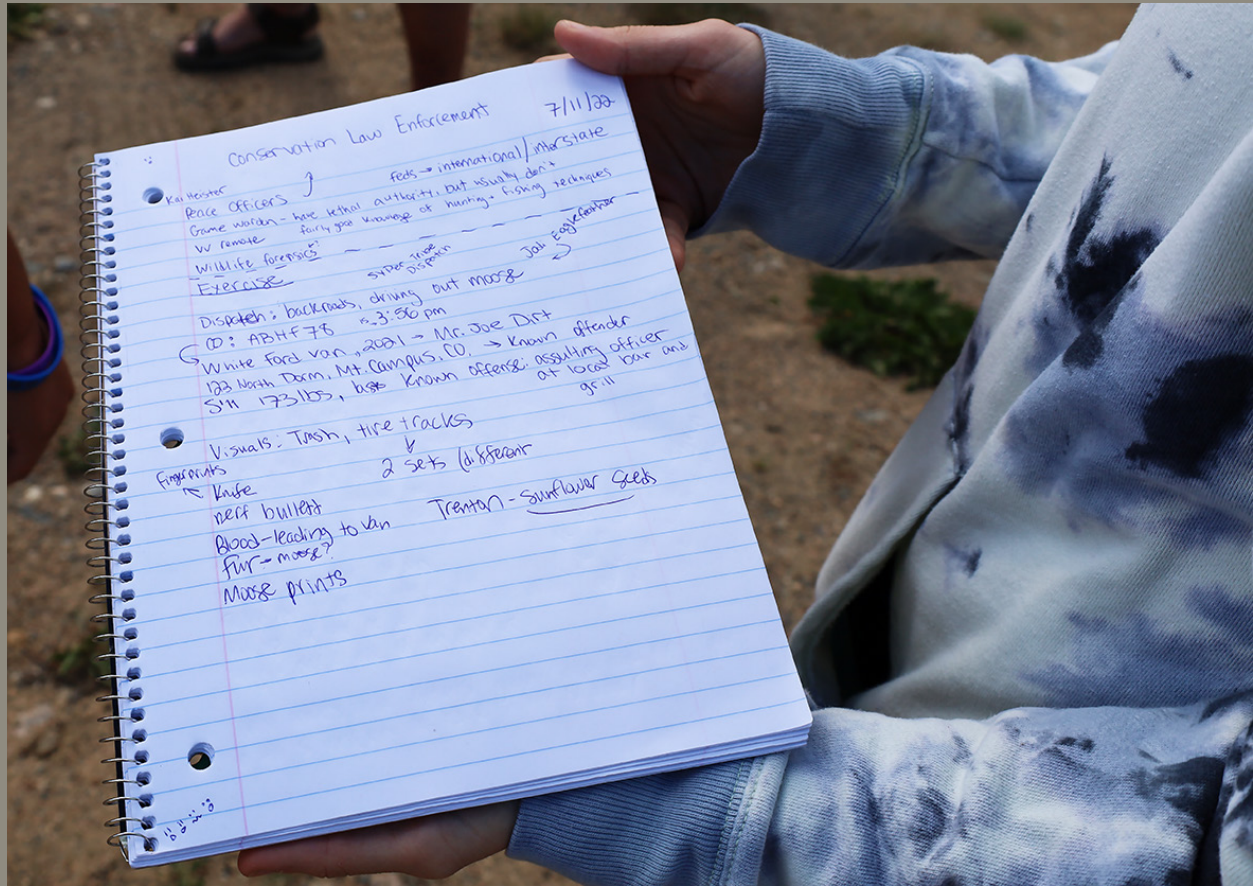 Conservation Law Enforcement 7/11/22
Kai Heister
feds → international/interstate
Peace Officers
Game warden - have lethal authority, but usually don't
fairly good knowledge of hunting + fishing techniques
VV remote
Wildlife forensics
Exercise
Super Tribe
Dispatch
Josh Eaglefeather
Dispatch: backroads, driving out moose
CO: ABHF78 3:56 pm
White Ford Van, 2021 → Mr. Joe Dirt
123 North Dorm, Mt. Campus, CO. → Known offender
5'11 173 lbs, Known offense: assulting officer
at local bar and
grill
Visuals: Trash, tire tracks
2 sets (different
Fingerprints
Knife
nerf bullett
Trenton - Sunflower Seeds
Blood-leading to van
Fur → moose?
Moose prints